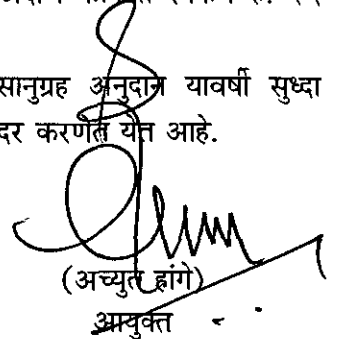 सानुग्रह अनुदान यावर्षी सुध्दा
दर करणेत येत आहे.
(अच्युत हांगे)
आयुक्त